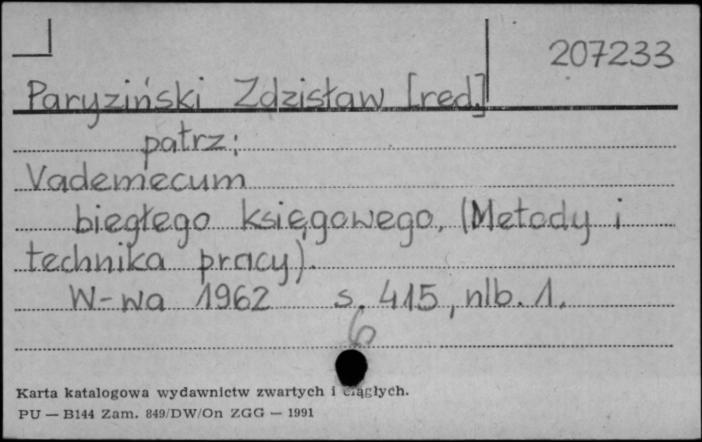 207233
Paryziński Zdzisław [red.]
patrz:
Vademecum
biegłego księgowego, (Metody i
technika pracy).
W-wa 1962 s. 415, nlb. 1.
6
Karta katalogowa wydawnictw zwartych i ciągłych.
PU — B144 Zam. 849/DW/On ZGG — 1991